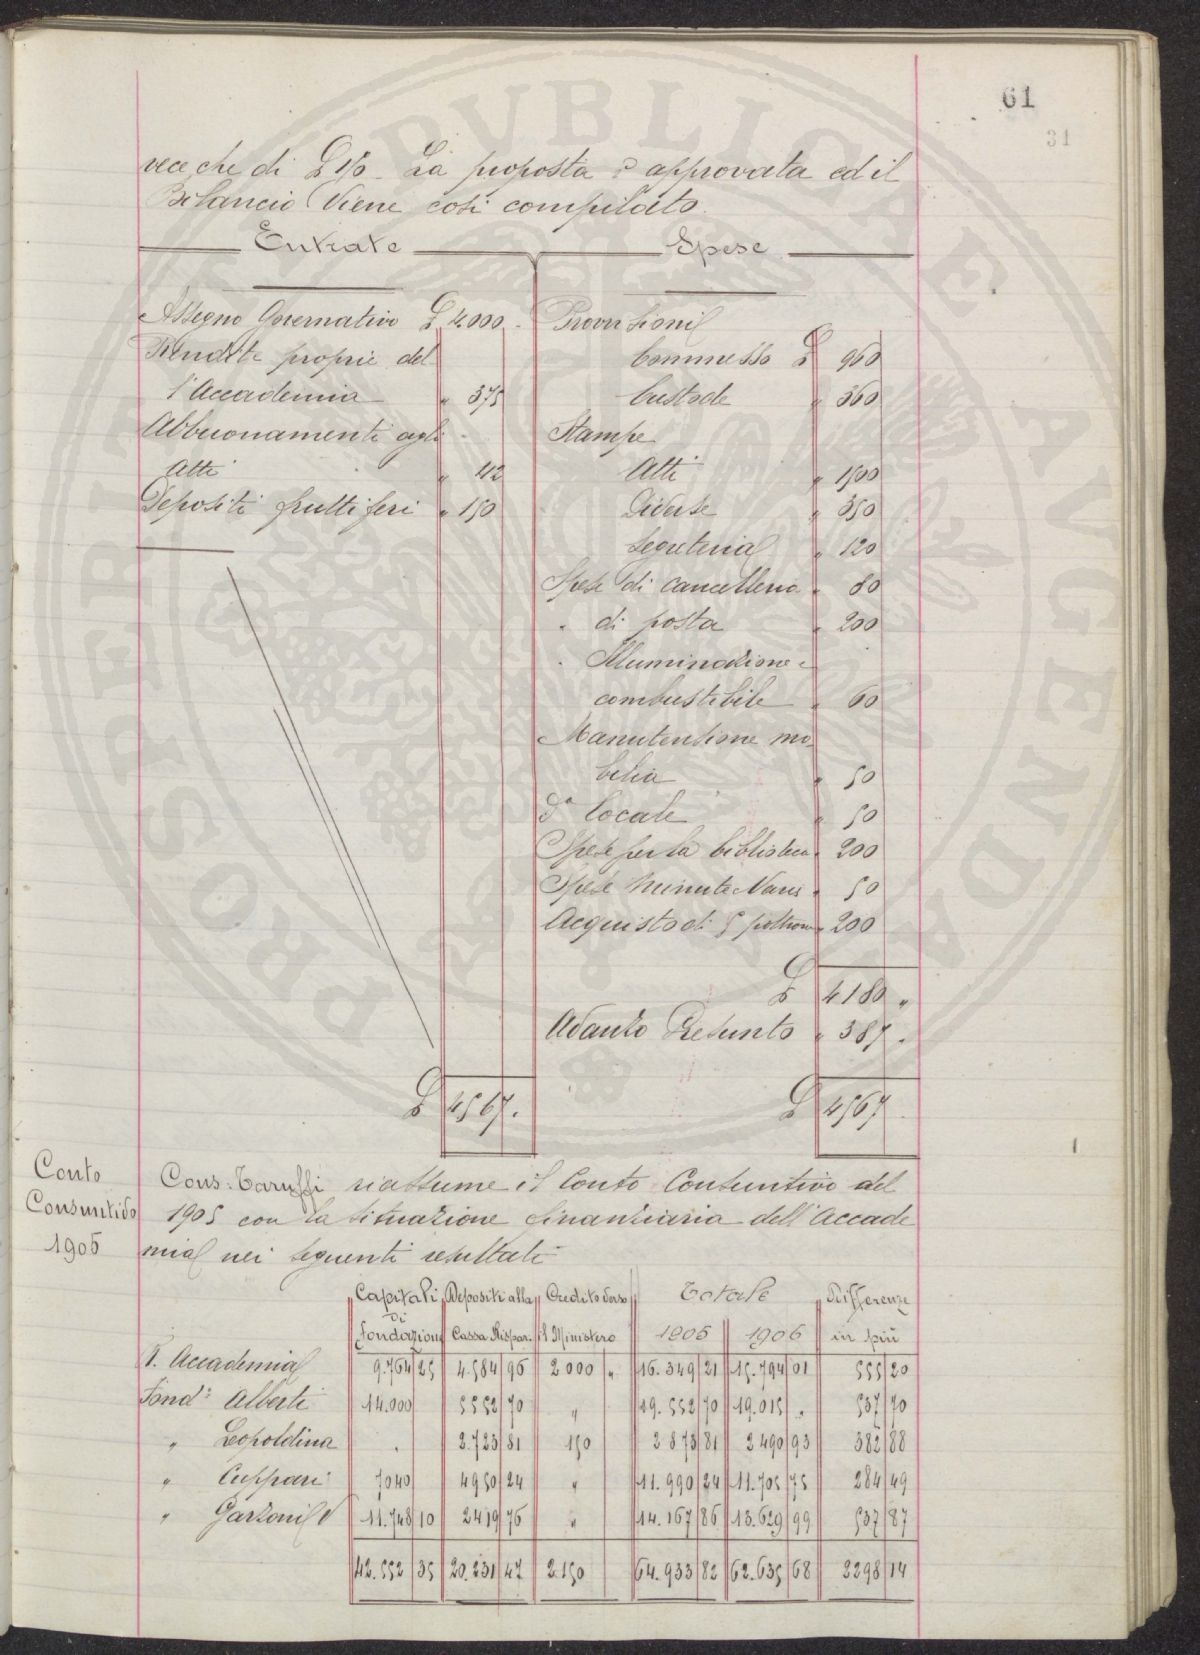 61
31
vece che di £ 1/50. La proposta è approvata ed il
Bilancio Viene così compilato.
Entrate
Assegno Governativo £ 4.000.
Rendite proprie del
l'Accademia " 375
Abbuonamenti agli
Atti " 42
Depositi fruttiferi " 150
£ 4567.
Spese
Provvisioni
Commesso £ 960
Custode " 360
Stampe
Atti " 1500
Diverse " 350
Segreteria " 120
Spese di cancelleria " 80
" di posta " 200
" Illuminazione e
combustibile " 60
Manutenzione mo-
bilia " 50
Dº locale " 50
Spese per la biblioteca " 200
Spese minute Varie " 50
Acquisto di 5 poltrone " 200
£ 4180 "
Avanzo Presunto " 387.
£ 4567
Conto
Consuntivo
1905
Cons: Taruffi riassume il Conto Consuntivo del
1905 con la situazione finanziaria dell'Accade
mia nei seguenti resultati
Capitali di Fondazione | Depositi alla Cassa Rispar. | Credito verso il Ministero | Totale 1905 | 1906 | Differenze in più
R. Accademia 9.764 25 4.584 96 2000 " 16.349 21 15.794 01 555 20
Fond.e Alberti 14.000 5552 70 " 19.552 70 19.015 " 537 70
" Leopoldina . 2.723 81 150 2873 81 2490 93 382 88
" Cuppari 7040 4950 24 " 11.990 24 11.705 75 284 49
" Garzoni 11.748 10 2419 76 " 14.167 86 13.629 99 537 87
42.552 35 20.231 47 2.150 64.933 82 62.635 68 2298 14
PROSPERITATI PVBLICAE AVGENDAE